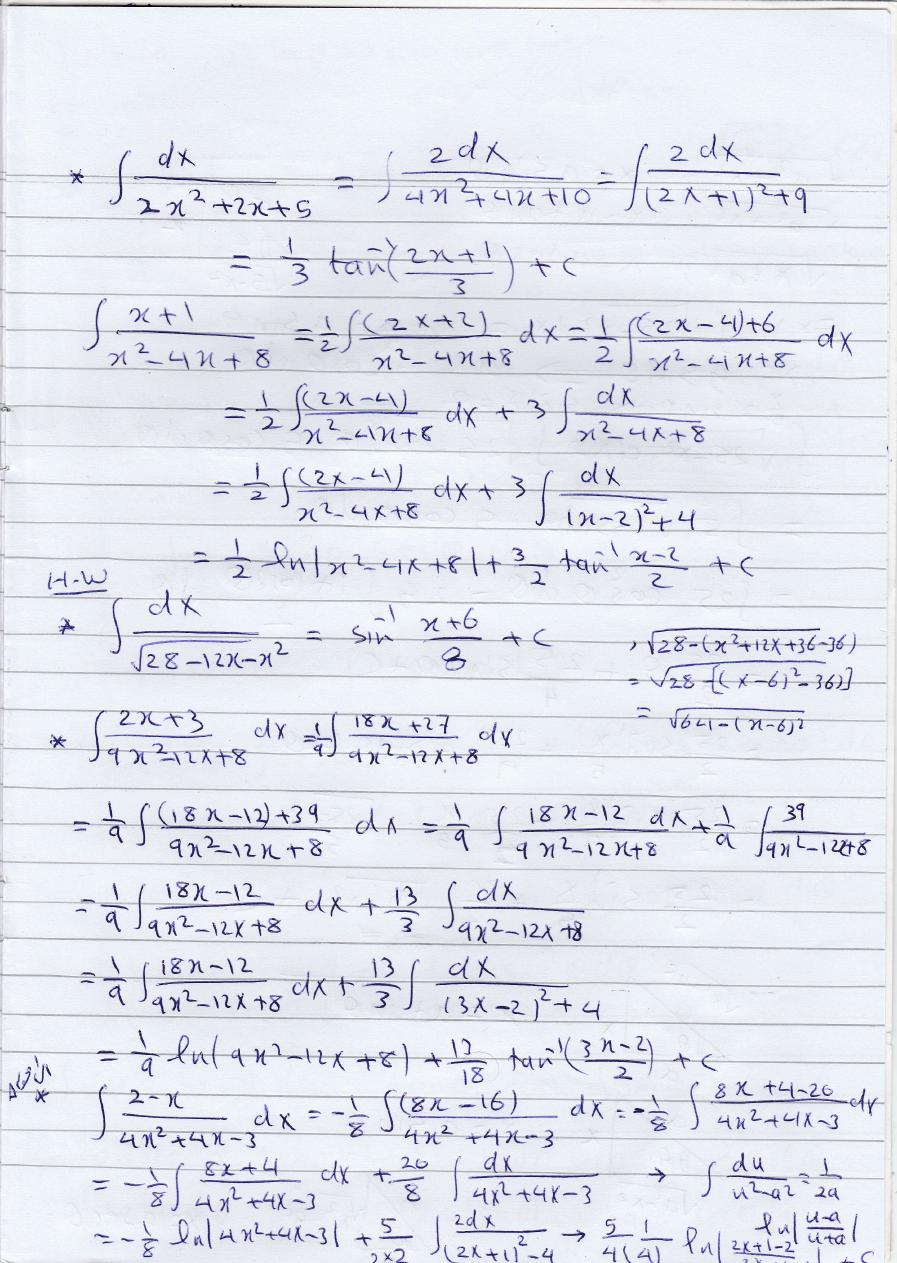 * ∫ dx / (2x²+2x+5) = ∫ 2dx / (4x²+4x+10) = ∫ 2 dx / ((2x+1)²+9)
= 1/3 tan⁻¹((2x+1)/3) + c
∫ (x+1) / (x²-4x+8) = 1/2 ∫ (2x+2) / (x²-4x+8) dx = 1/2 ∫ ((2x-4)+6) / (x²-4x+8) dx
= 1/2 ∫ (2x-4) / (x²-4x+8) dx + 3 ∫ dx / (x²-4x+8)
= 1/2 ∫ (2x-4) / (x²-4x+8) dx + 3 ∫ dx / ((x-2)²+4)
= 1/2 ln|x²-4x+8| + 3/2 tan⁻¹ (x-2)/2 + c
H.W
* ∫ dx / √(28-12x-x²) = sin⁻¹ (x+6)/8 + c , √(28-(x²+12x+36-36)
= √(28-[(x-6)²-36)]
= √(64-(x-6)²
* ∫ (2x+3) / (9x²-12x+8) dx = 1/9 ∫ (18x+27) / (9x²-12x+8) dx
= 1/9 ∫ ((18x-12)+39) / (9x²-12x+8) dx = 1/9 ∫ (18x-12) / (9x²-12x+8) dx + 1/9 ∫ 39 / (9x²-12x+8)
= 1/9 ∫ (18x-12) / (9x²-12x+8) dx + 13/3 ∫ dx / (9x²-12x+8)
= 1/9 ∫ (18x-12) / (9x²-12x+8) dx + 13/3 ∫ dx / ((3x-2)²+4)
= 1/9 ln(9x²-12x+8) + 13/18 tan⁻¹((3x-2)/2) + c
* ∫ (2-x) / (4x²+4x-3) dx = -1/8 ∫ (8x-16) / (4x²+4x-3) dx = -1/8 ∫ (8x+4-20) / (4x²+4x-3) dx
= -1/8 ∫ (8x+4) / (4x²+4x-3) dx + 20/8 ∫ dx / (4x²+4x-3) → ∫ du / (u²-a²) = 1/2a ln|(u-a)/(u+a)|
= -1/8 ln|4x²+4x-3| + 5/(2×2) ∫ 2dx / ((2x+1)²-4) → 5/4 (1/4) ln|2x+1-2